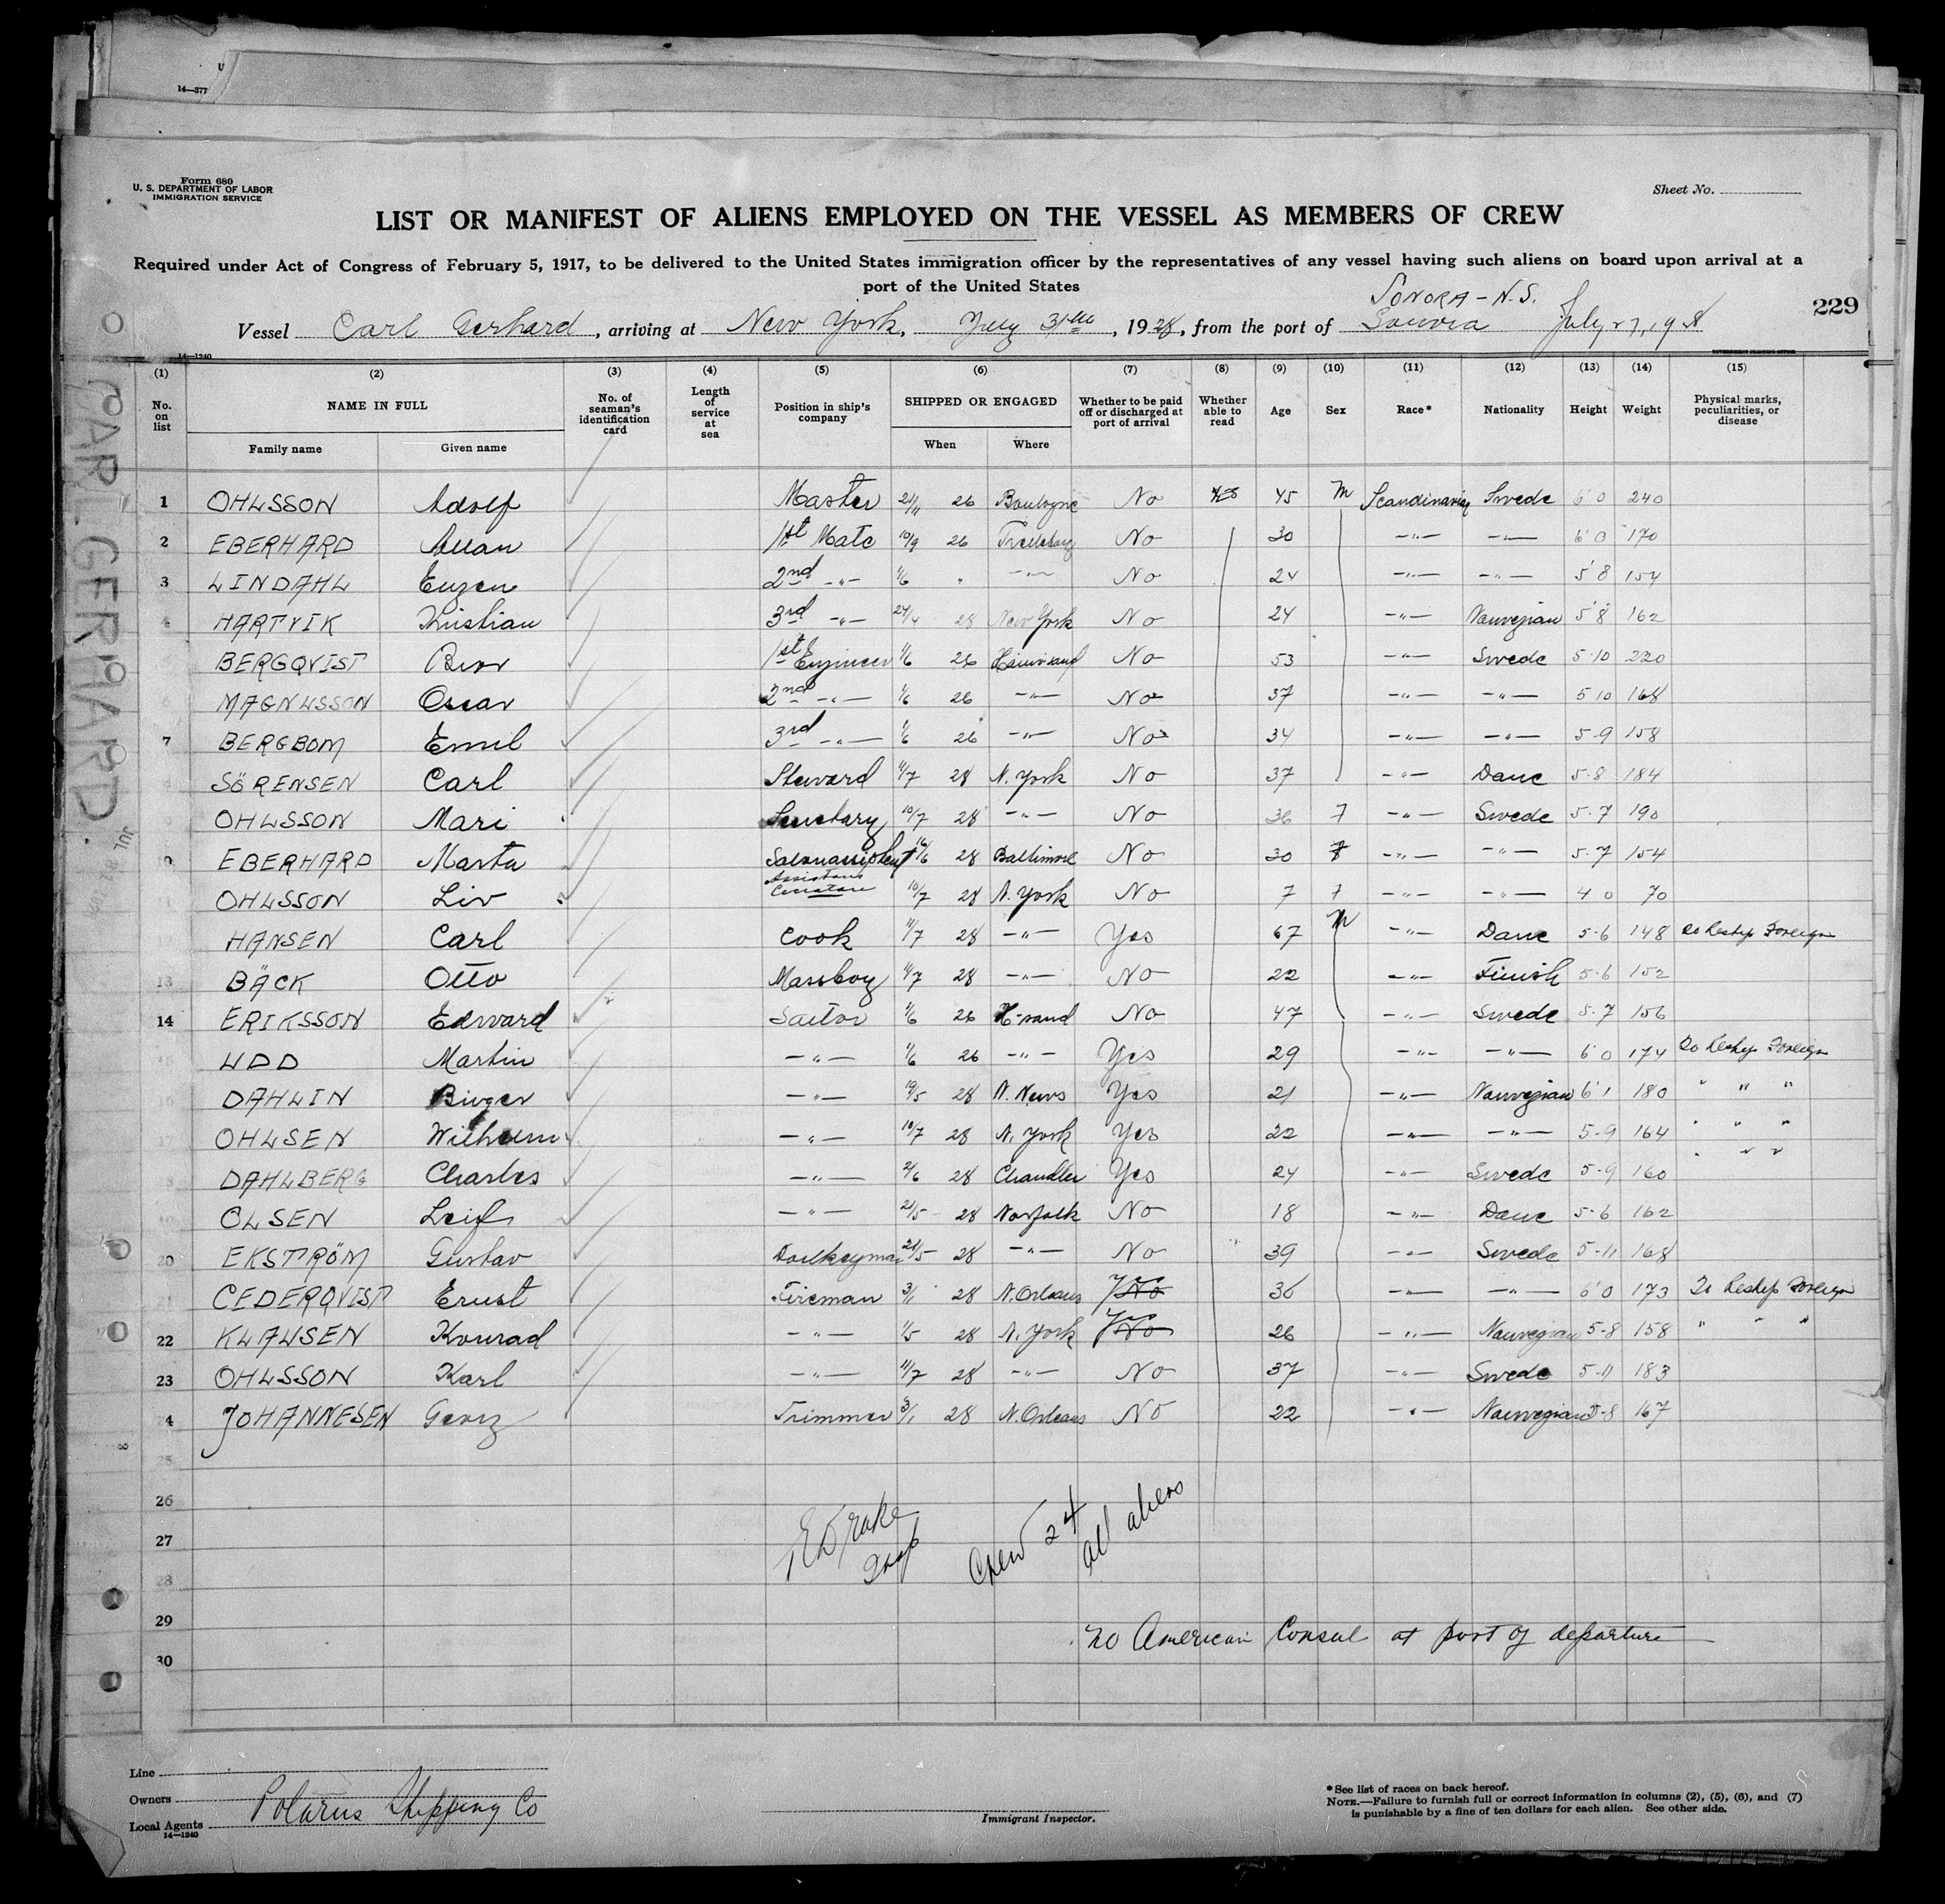 14—377
Form 680
U. S. DEPARTMENT OF LABOR
IMMIGRATION SERVICE
Sheet No.
LIST OR MANIFEST OF ALIENS EMPLOYED ON THE VESSEL AS MEMBERS OF CREW
Required under Act of Congress of February 5, 1917, to be delivered to the United States immigration officer by the representatives of any vessel having such aliens on board upon arrival at a
port of the United States
SONORA - N.S.
229
Vessel Carl Gerhard, arriving at New York, July 31st, 1928, from the port of Sonora July 27, 1928
14—1240
CARL GERHARD.
(1) (2) (3) (4) (5) (6) (7) (8) (9) (10) (11) (12) (13) (14) (15)
No. on list NAME IN FULL No. of seaman's identification card Length of service at sea Position in ship's company SHIPPED OR ENGAGED Whether to be paid off or discharged at port of arrival Whether able to read Age Sex Race* Nationality Height Weight Physical marks, peculiarities, or disease
Family name Given name When Where
1 OHLSSON Adolf Master 21/11 26 Boulogne No Yes 45 M Scandinavian Swede 6 0 240
2 EBERHARD Allan 1st Mate 10/9 26 Trelleborg No 30 -"- -"- 6 0 170
3 LINDAHL Eugen 2nd -"- 1/6 " -"- No 24 -"- -"- 5 8 154
4 HARTVIK Kristian 3rd -"- 24/4 28 New York No 24 -"- Norwegian 5 8 162
BERGQVIST 1st Engineer 1/6 26 No 53 -"- Swede 5-10 220
6 MAGNUSSON Oscar 2nd -"- 1/6 26 -"- No 37 -"- -"- 5 10 168
7 BERGBOM Emil 3rd -"- 1/6 26 -"- No 34 -"- -"- 5-9 158
8 SÖRENSEN Carl Steward 11/7 28 N. York No 37 -"- Dane 5-8 184
OHLSSON Mari Secretary 10/7 28 -"- No 36 F -"- Swede 5-7 190
EBERHARD Marta 16/6 28 Baltimore No 30 F -"- -"- 5-7 154
11 OHLSSON Liv Assistans 10/7 28 N. York No 7 F -"- -"- 4 0 70
12 HANSEN Carl Cook 11/7 28 -"- Yes 67 M -"- Dane 5-6 148 To Reship Foreign
13 BÄCK Otto Messboy 11/7 28 -"- No 22 -"- Finish 5-6 152
14 ERIKSSON Edward Sailor 1/6 26 H-sand No 47 -"- Swede 5-7 156
15 UDD Martin -"- 1/6 26 -"- Yes 29 -"- -"- 6 0 174 To Reship Foreign
16 DAHLIN Birger -"- 19/5 28 N. News Yes 21 -"- Norwegian 6 1 180 " " "
17 OHLSEN Wilhelm -"- 10/7 28 N. York Yes 22 -"- -"- 5-9 164 " " "
18 DAHLBERG Charles -"- 2/6 28 Chandler Yes 24 -"- Swede 5-9 160 " " "
19 OLSEN Leif -"- 21/5 28 Norfolk No 18 -"- Dane 5-6 162
20 EKSTRÖM Gustav Donkeyman 21/5 28 -"- No 39 -"- Swede 5-11 168
21 CEDERQVIST Ernst Fireman 3/1 28 N. Orleans Yes No 36 -"- -"- 6 0 173 To Reship Foreign
22 KLAUSEN Konrad -"- 1/5 28 N. York Yes No 26 -"- Norwegian 5-8 158 " " "
23 OHLSSON Karl -"- 11/7 28 -"- No 37 -"- Swede 5-11 183
24 JOHANNESEN Georg Trimmer 3/1 28 N. Orleans No 22 -"- Norwegian 5-8 167
25
26
27
28
29
30
E Drake
Insp
Crew 24
all aliens
No American Consul at port of departure
Line
Owners
Local Agents Polarus Shipping Co
14—1240
Immigrant Inspector.
*See list of races on back hereof.
NOTE.—Failure to furnish full or correct information in columns (2), (5), (6), and (7)
is punishable by a fine of ten dollars for each alien. See other side.